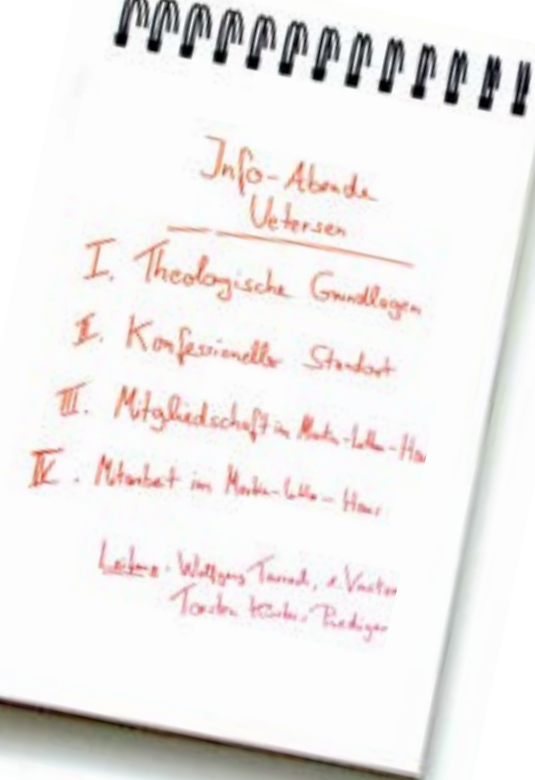 Info-Abende
Uetersen
I. Theologische Grundlagen
II. Konfessioneller Standort
III. Mitgliedschaft im Martin-Luther-Hau
IV. Mitarbeit im Martin-Luther-Haus
Leitung: Wolfgang
Torsten Prediger